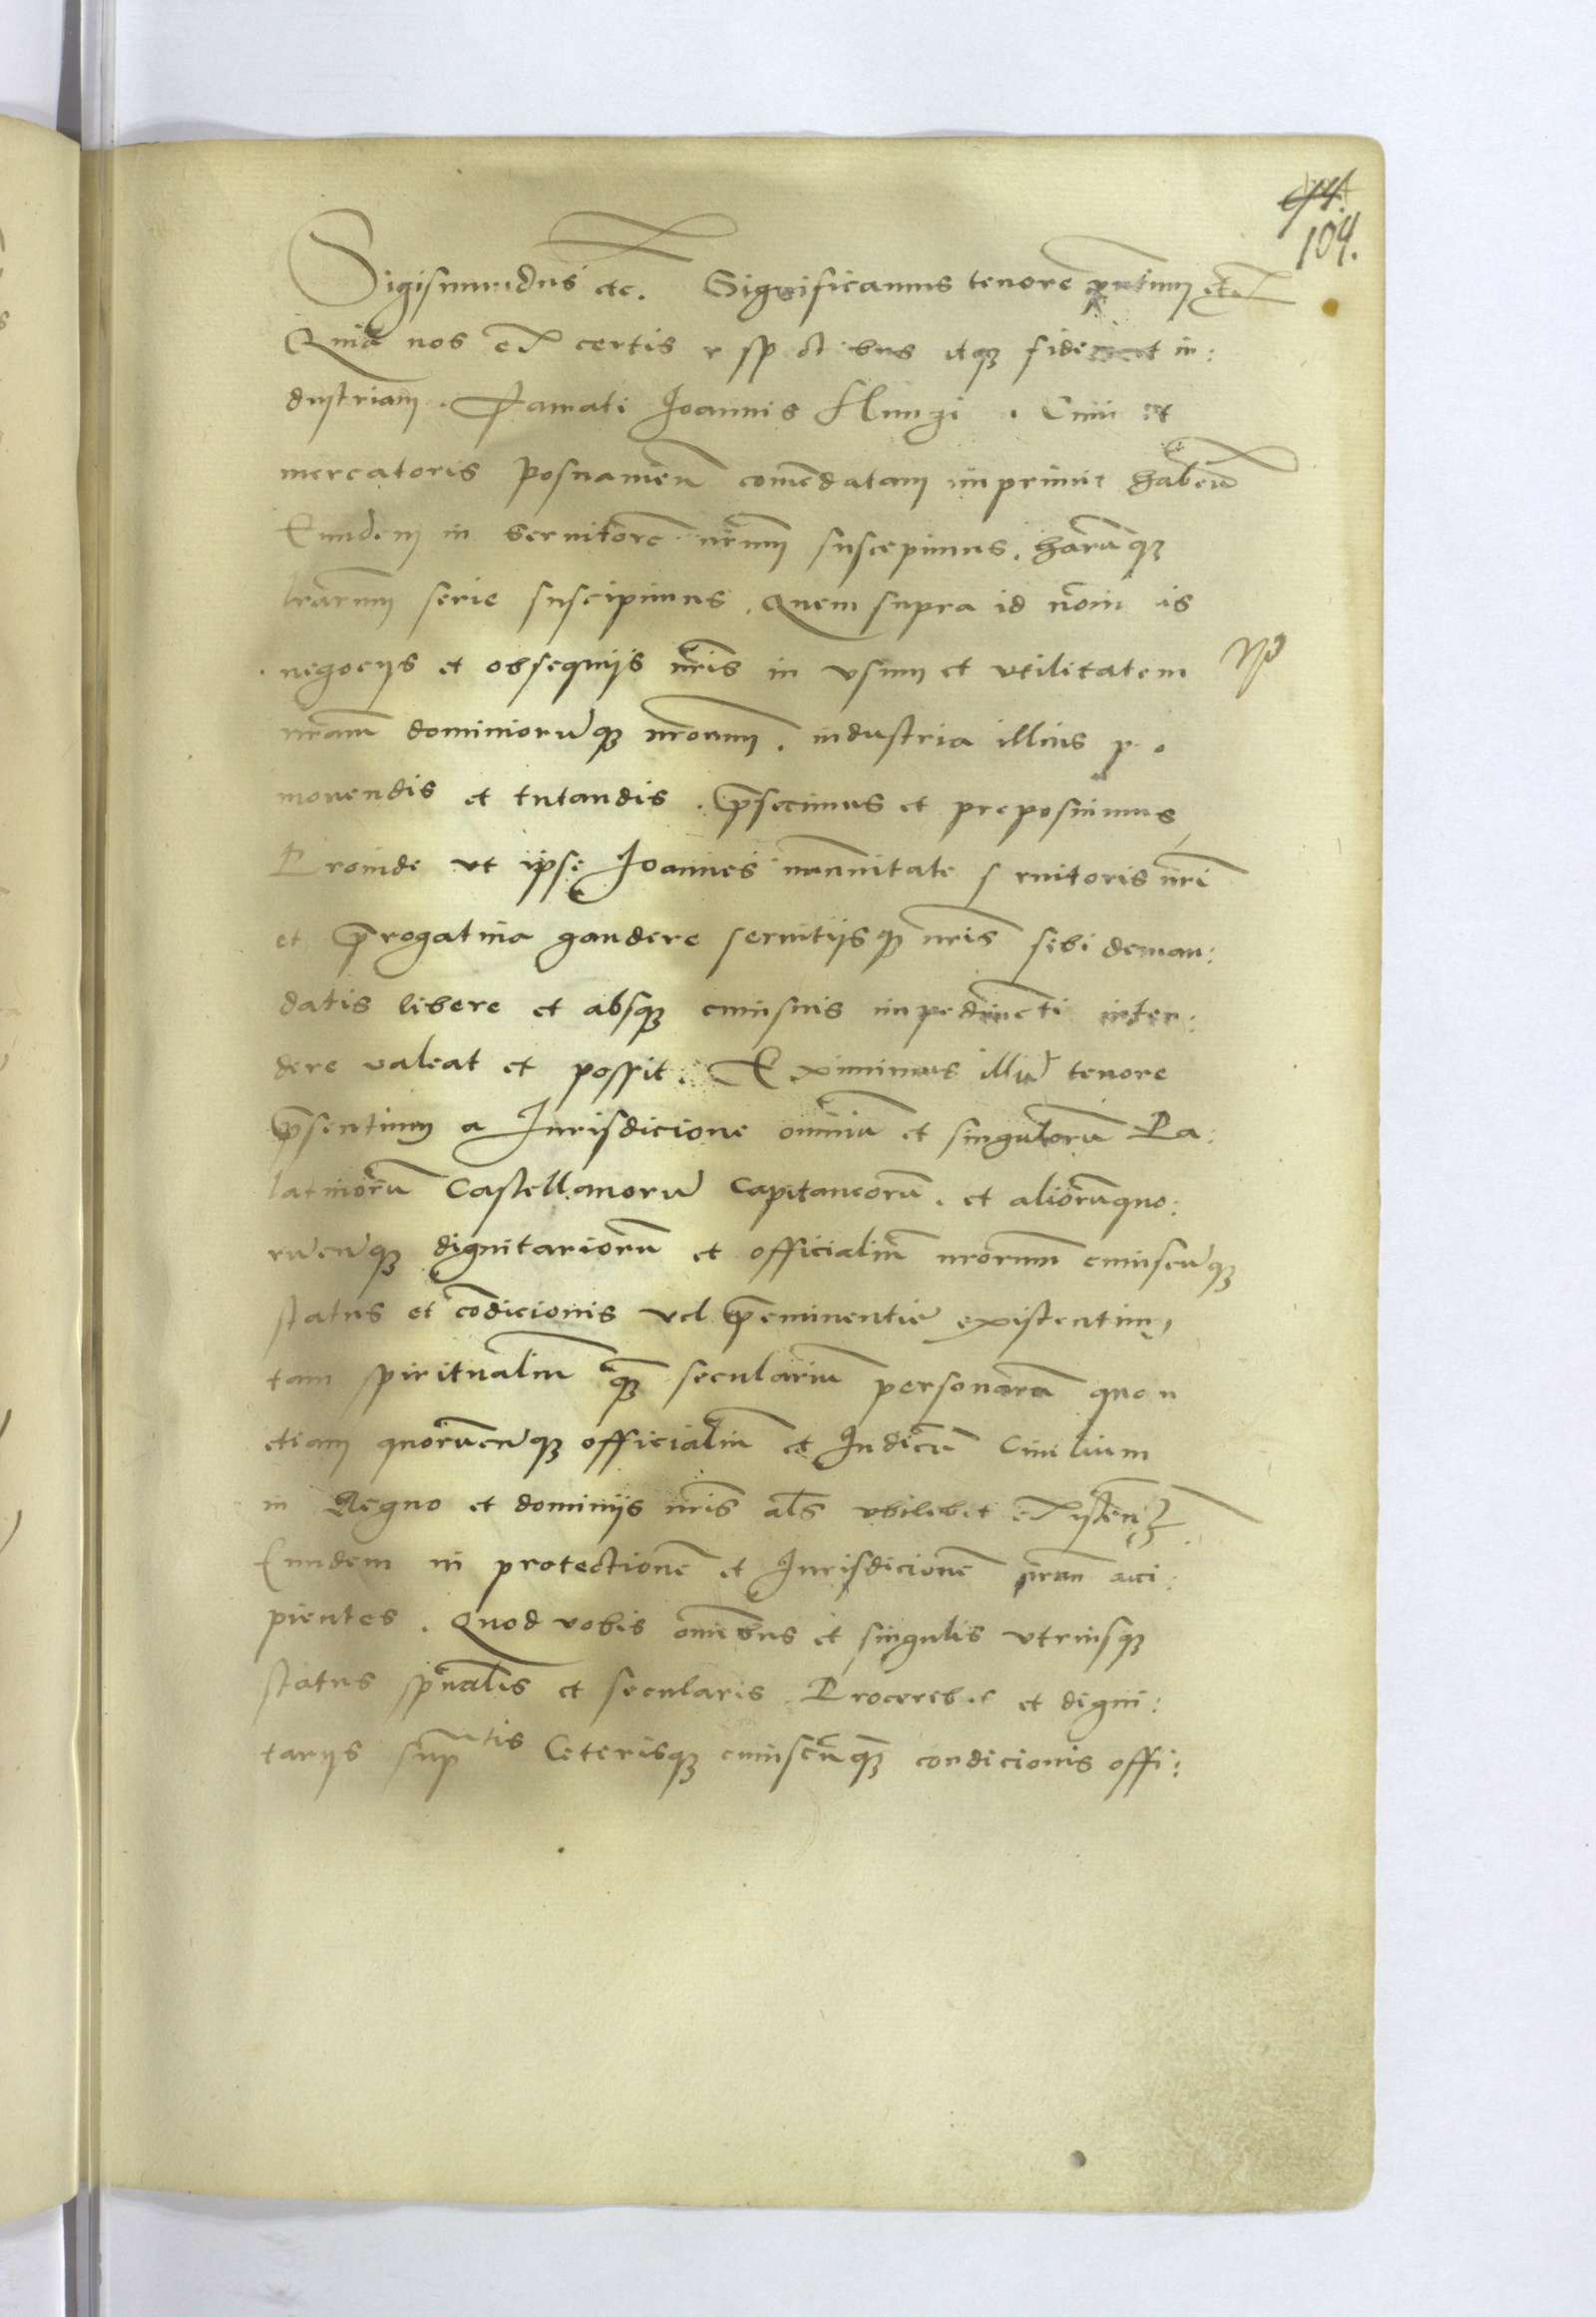 94.
104.
Sigismundus etc. Significamus tenore pntium etc
Quia nos ex certis r sp ctibus itqȝ fidem et in:
dustriam. Famati Joannis Clunzi. Ciui et
mercatoris posnanien comendatam inprimis haben
Eundem in seruitore nrum suscepimus. harumqȝ
lrarum serie suscipimus. Quem supra id nom is
negocÿs et obsequÿs nris in vsum et vtilitatem
nram dominiorumqȝ nrorum. industria illius p o
mouendis et tutandis. pfecimus et preposuimus
Proinde vt ipse Joannes immunitate s ruitoris nri
et progatiua gaudere seruitÿsqȝ nris sibi deman:
datis libere et absqȝ cuiusuis impedimeti inten:
dere valeat et possit. Eximimus illu tenore
psentium a Jurisdicione omniu et singuloru Pa:
latinoru Castellanoru Capitaneoru. et alioruquo:
rucuqȝ dignitarioru et officialiu nrorum cuiuscuqȝ
status et codicionis vel peminentie existentiu,
tam spiritualiu qȝ seculariu personaru quon
etiam quorucuqȝ officialiu et Judicu Ciuilium
in Regno et dominÿs nris als vbilibet existen
Eundem in protectione et Jurisdicione nram acci:
pientes. Quod vobis omibus et singulis vtriusqȝ
status spualis et secularis Procerib et digni:
tarÿs sup tis Ceterisqȝ cuiuscuqȝ condicionis offi: